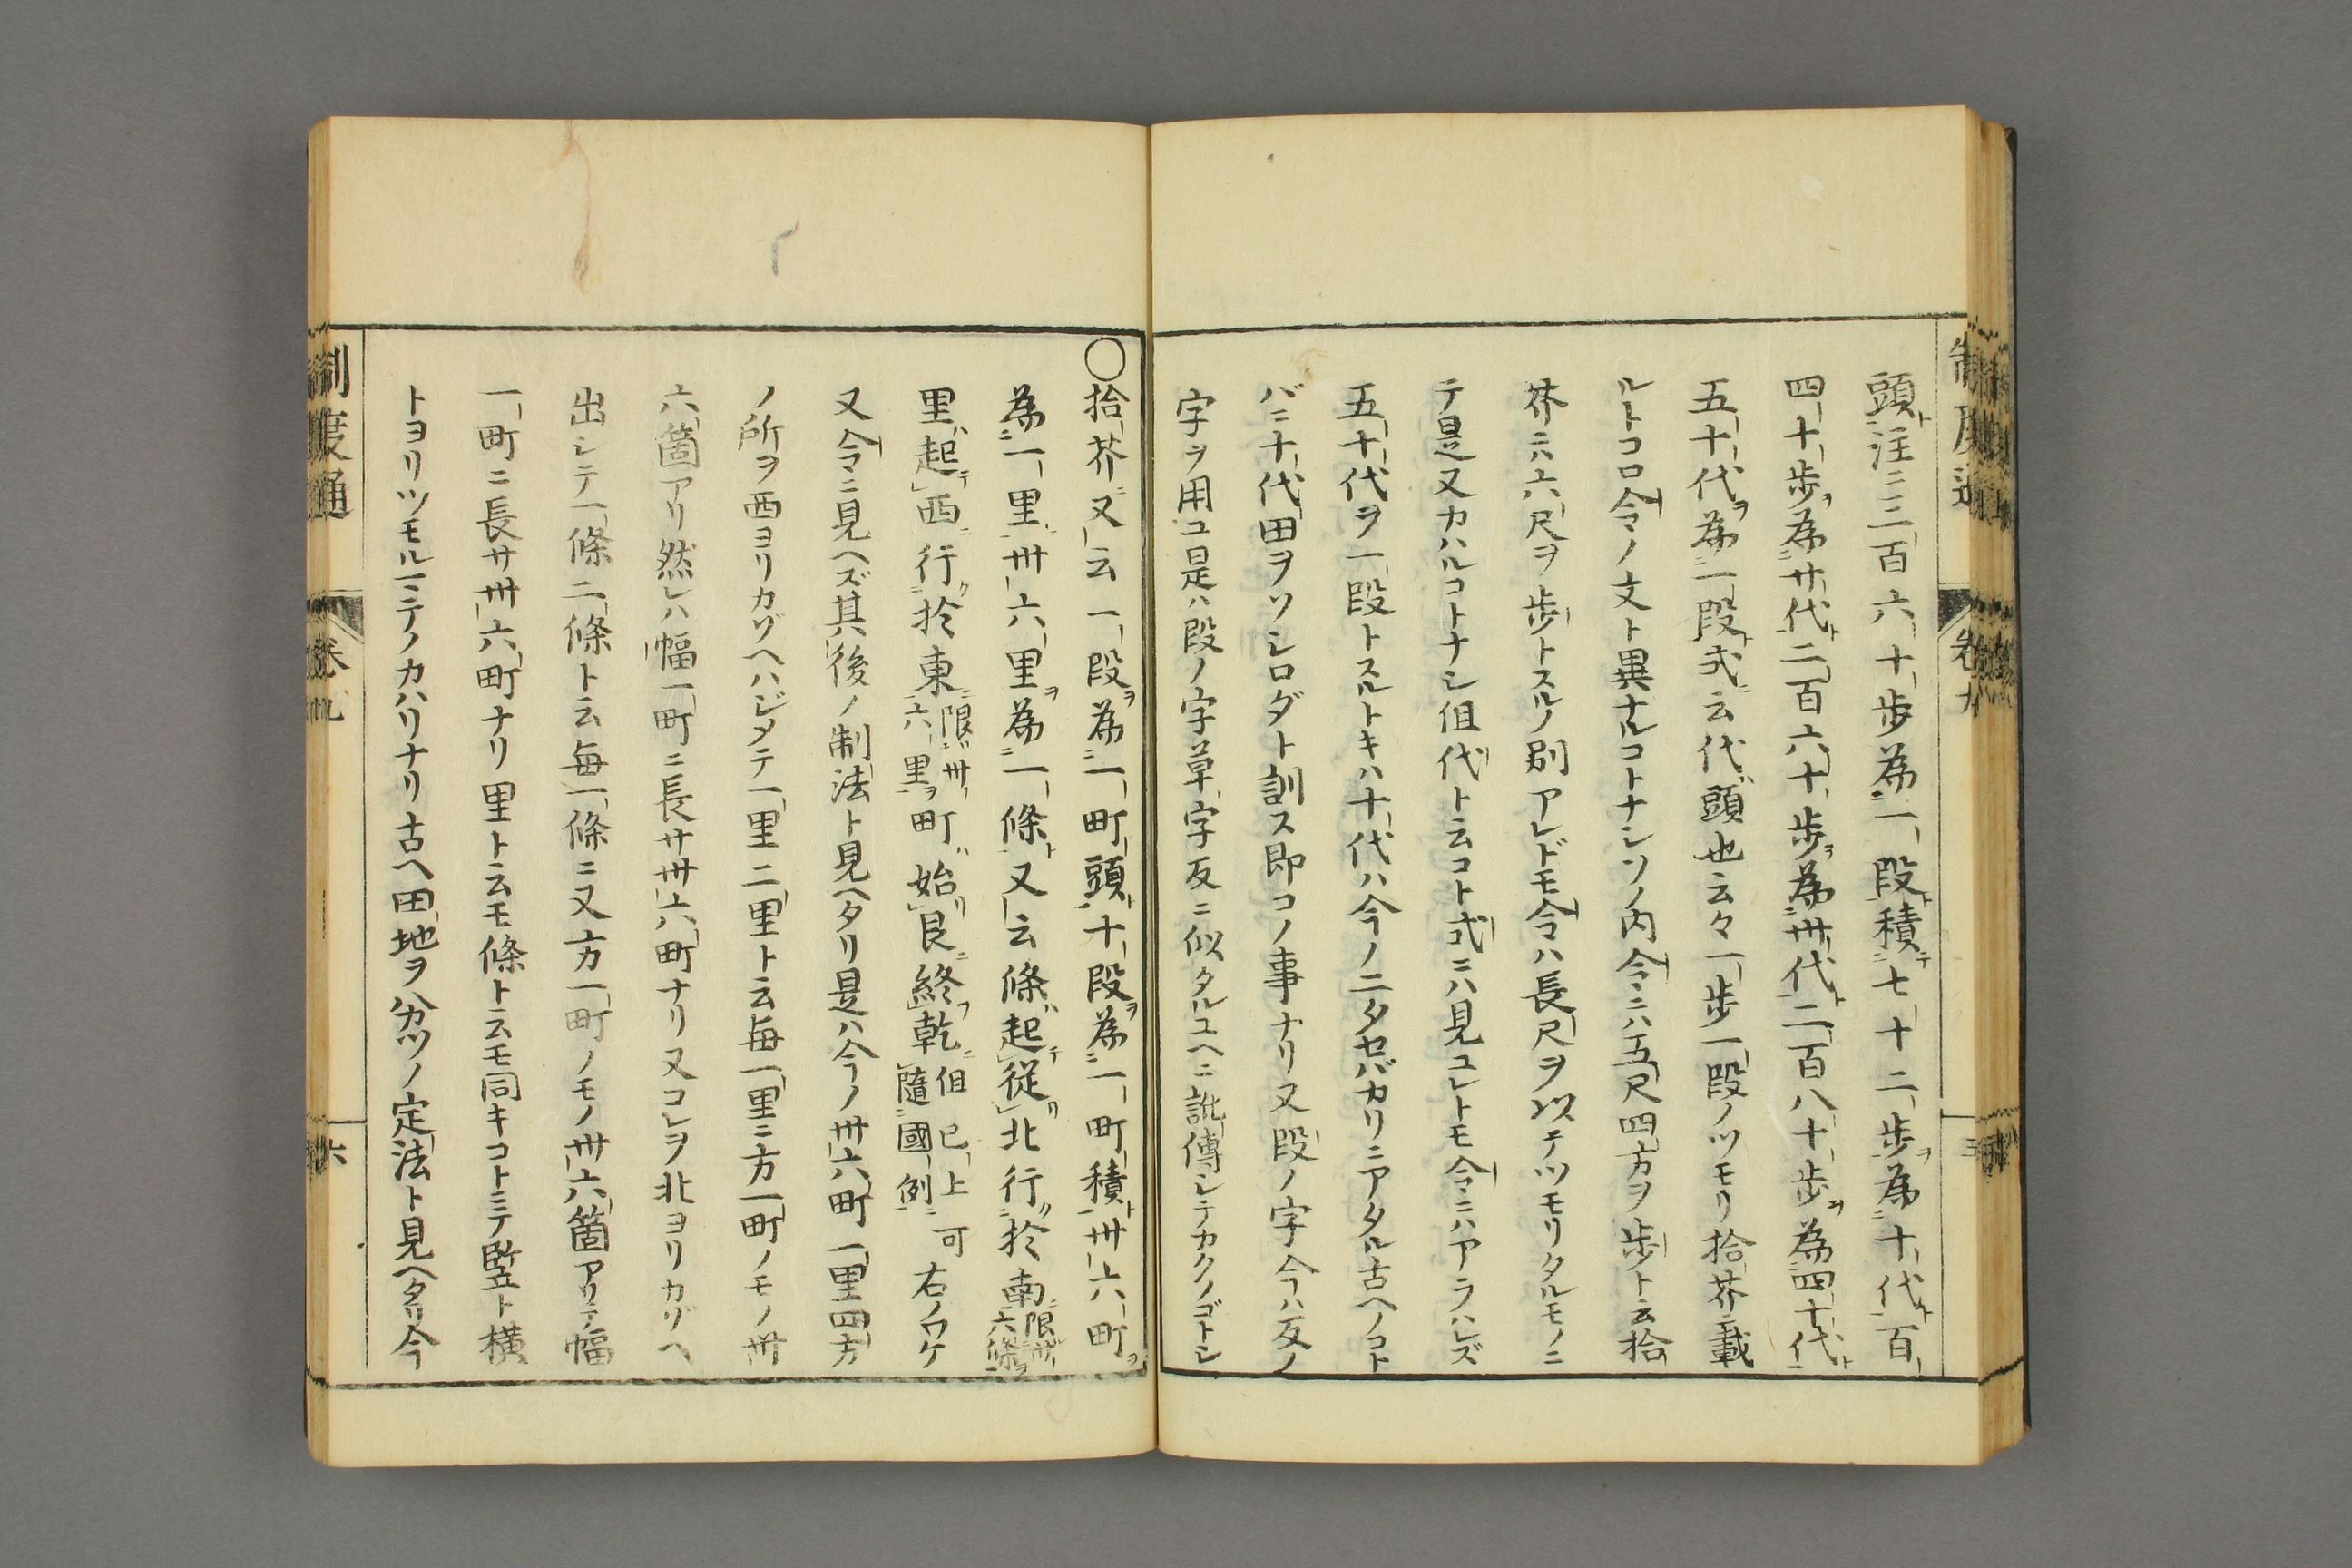 頭注ニ三百六十歩為一段積七十二歩為十代百
四十歩為廿代二百六十歩為卅代二百八十歩為四十代
五十代為一段式云代頭也云々一歩一段ノツモリ拾芥載
ルトコロ令ノ文ト異ナルコトナシソノ内令ニハ五尺四方ヲ歩ト云拾
芥ニハ六尺ヲ歩トスルノ別アレドモ令ハ長尺ヲ以テツモリタルモノニ
テ是又カハルコトナシ但代ト云コト式ニハ見ユレトモ令ニハアラハレズ
五十代ヲ一段トスルトキハ十代ハ今ノ二タセバカリニアタル古ヘノコト
バニ十代田ヲソシロダト訓ス即コノ事ナリ又段ノ字今ハ反ノ
字ヲ用ユ是ハ段ノ字草字反ニ似タルユヘニ訛傳シテカクノゴトシ
〇拾芥又云一段為一町頭十段為一町積卅六町
為一里卅六里為一條又云條起従北行於南限卅六條
里起西行於東限卅六里町始艮終乾但已上可隨國例右ノワケ
又令ニ見ヘズ其後ノ制法ト見ヘタリ是ハ今ノ卅六町一里四方
ノ所ヲ西ヨリカゾヘハジメテ一里二里ト云毎一里ニ方一町ノモノ卅
六箇アリ然レハ幅一町ニ長サ卅六町ナリ又コレヲ北ヨリカゾヘ
出シテ一條二條ト云毎一條ニ又方一町ノモノ卅六箇アリテ幅
一町ニ長サ卅六町ナリ里ト云モ條ト云モ同キコトニテ竪ト横
トヨリツモル一ニテノカハリナリ古ヘ田地ヲ分ツノ定法ト見ヘタリ今
制度通
卷九
六